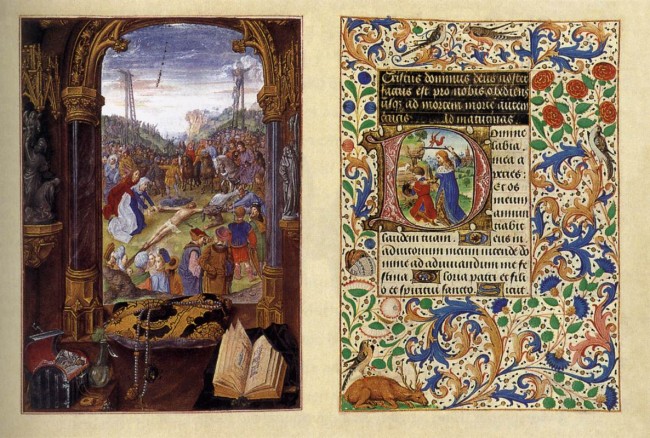 Cristus dominus deus noster
factus est pro nobis obediens
usqz ad mortem morte autem
crucis. Ad matutinas
Domine
labia
mea a
peries:
Et os
meum
annun
ciabit
laudem tuam. Deus in
adiutorium meum intende do
mine ad adiuuandum me fe
stina. Gloria patri et fili
o et spiritui sancto. Sicut